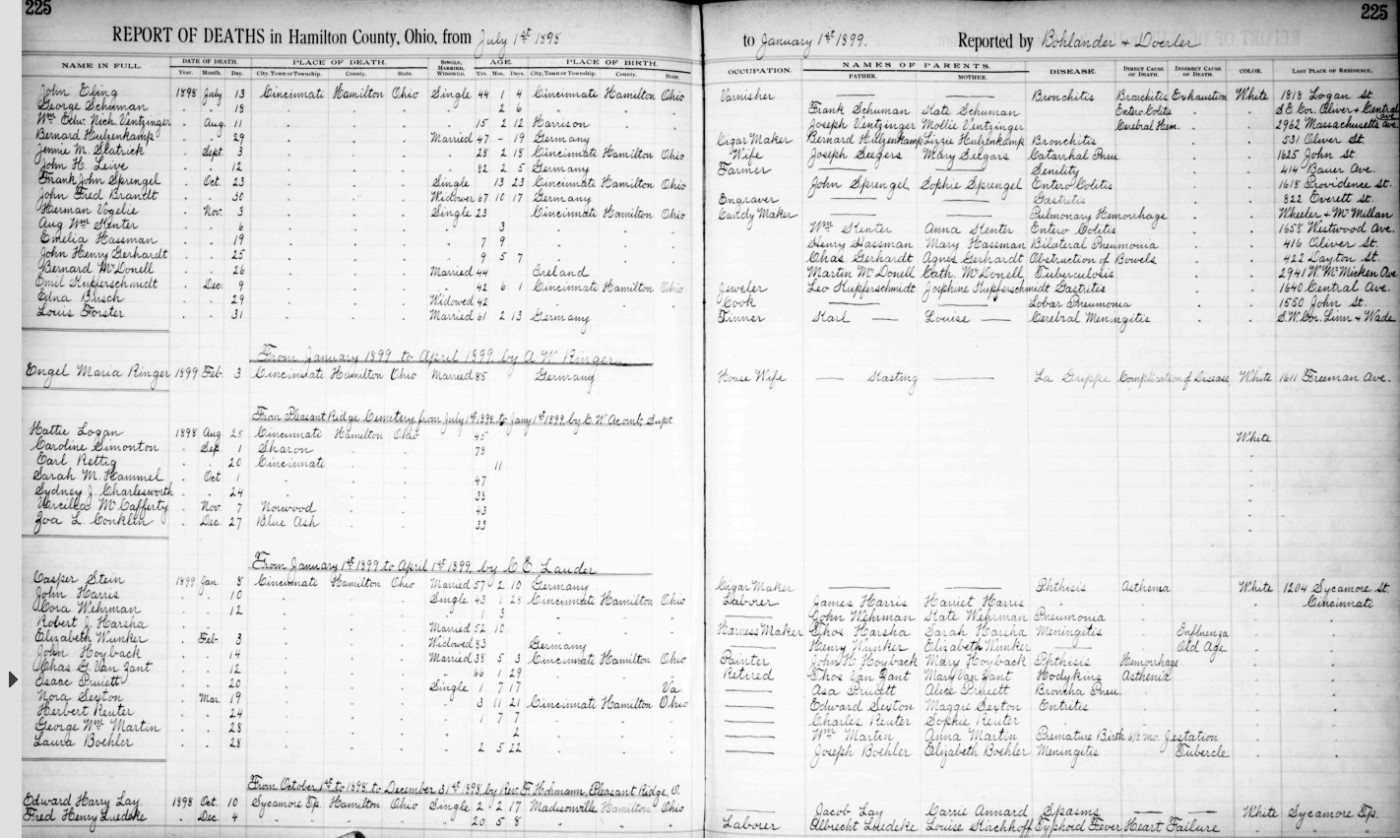 225 225
REPORT OF DEATHS in Hamilton County, Ohio, from July 1st 1898 to January 1st 1899. Reported by Bohlander & Doerler
NAME IN FULL. DATE OF DEATH. PLACE OF DEATH. SINGLE, MARRIED, WIDOWED. AGE. PLACE OF BIRTH. OCCUPATION. NAMES OF PARENTS. DISEASE. DIRECT CAUSE OF DEATH. INDIRECT CAUSE OF DEATH. COLOR. LAST PLACE OF RESIDENCE.
Year. Month. Day. City, Town or Township. County. State. Yrs. Mos. Days. City, Town or Township. County. State. FATHER. MOTHER.
John Efing 1898 July 13 Cincinnati Hamilton Ohio Single 44 1 4 Cincinnati Hamilton Ohio Varnisher — — Bronchitis Bronchitis Exhaustion White 1818 Logan St.
George Schuman . . 18 . . . . 2 6 . . . Frank Schuman Kate Schuman Entero Colitis . S.E. Cor. Oliver & Central Ave
Wm Edw. Nich. Ventzinger . Aug 11 . . . . 15 2 12 Harrison . . Joseph Ventzinger Mollie Ventzinger Cerebral Hem. . 2962 Massachusetts Ave
Bernard Hulzenkamp . . 29 . . . Married 47 - 19 Germany Cigar Maker Bernard Hulzenkamp Lizzie Hulzenkamp Bronchitis . . . 531 Oliver St.
Jennie M. Slatrick . Sept. 8 . . . . 28 2 18 Cincinnati Hamilton Ohio Wife Joseph Seegers Mary Seegars Catarrhal Pneu . . . 1625 John St.
John H. Leive . . 12 . . . . 82 2 5 Germany Farmer — — Senility . . . 414 Bauer Ave.
Frank John Sprengel . Oct. 23 . . . Single 13 23 Cincinnati Hamilton Ohio John Sprengel Sophie Sprengel Entero Colitis . . . 1618 Providence St.
John Fred Brandt . . 30 . . . Widower 67 10 17 Germany Engraver — — Gastritis . . . 822 Everett St.
Herman Vogelie . Nov. 3 . . . Single 23 Cincinnati Hamilton Ohio Candy Maker — — Pulmonary Hemorrhage . . Wheeler & McMillan
Aug Wm Kenter . . 6 . . . . 3 . . . Wm Kenter Anna Kenter Entero Colitis . . . 1658 Westwood Ave.
Emelia Hassman . . 19 . . . . 7 9 . . . Henry Hassman Mary Hassman Bilateral Pneumonia . . 416 Oliver St.
John Henry Gerhardt . . 25 . . . . 9 5 7 . . . Chas Gerhardt Agnes Gerhardt Obstruction of Bowels . . 422 Dayton St.
Bernard McDonell . . 26 . . . Married 44 Ireland Martin McDonell Cath. McDonell Tuberculosis . . . 2941 W McMicken Ave
Emil Kupferschmidt . Dec. 9 . . . . 42 6 1 Cincinnati Hamilton Ohio Jeweler Leo Kupferschmidt Josephine Kupferschmidt Gastritis . . . 1640 Central Ave.
Edna Busch . . 29 . . . Widowed 42 . . . Cook — — Lobar Pneumonia . . 1550 John St.
Louis Forster . . 31 . . . Married 61 2 13 Germany Tinner Karl — Louise — Cerebral Meningitis . . S.W. Cor. Linn & Wade
From January 1899 to April 1899, by A W Ringer
Engel Maria Ringer 1899 Feb 3 Cincinnati Hamilton Ohio Married 85 Germany House Wife — Kasting — La Grippe Complication of Disease White 1611 Freeman Ave.
From Pleasant Ridge Cemetery, from July 1st 1898 to Jany 1st 1899, by C. W Acomb, Supt
Hattie Logan 1898 Aug 28 Cincinnati Hamilton Ohio 45 White
Caroline Simonton . Sep 1 Sharon . . 78 .
Carl Rettig . . 20 Cincinnati . . 11 .
Sarah M. Hammel . Oct 1 . . . 47 .
Sydney J. Charlesworth . . 24 . . . 38 .
McCafferty . Nov. 7 Norwood . . 43 .
Zoa L Conklin . Dec 27 Blue Ash . . 33 .
From January 1st 1899 to April 1st 1899, by C E Lauder
Casper Stein 1899 Jan 8 Cincinnati Hamilton Ohio Married 57 2 10 Germany Cigar Maker — — Phthisis Asthenia White 1204 Sycamore St. Cincinnati
John Harris . . 10 . . . Single 43 1 28 Cincinnati Hamilton Ohio Laborer James Harris Hariet Harris . .
Cora Wehrman . . 12 . . . . 1 3 . . . — John Wehrman Kate Wehrman Pneumonia .
Robert J. Harsha . . . . . Married 52 10 . . . Harness Maker Thos. Harsha Sarah Harsha Meningitis Influenza .
Elizabeth Wunker . Feb 3 . . . Widowed 83 Germany — Henry Wunker Elizabeth Wunker — Old Age .
John Hoyback . . 14 . . . Married 38 5 3 Cincinnati Hamilton Ohio Painter John H. Hoyback Mary Hoyback Phthisis Hemorrhage .
Chas G. Van Zant . . 12 . . . . 66 1 29 . . . Retired Thos Van Zant Mary Van Zant Hodgkins Asthenia .
Isaac Pruett . . 20 . . . Single 1 7 17 Va — Asa Pruett Alice Pruett Broncho Pneu .
Nora Sexton . Mar 19 . . . . 3 11 21 Cincinnati Hamilton Ohio — Edward Sexton Maggie Sexton Entritis .
Herbert Reuter . . 24 . . . . 1 7 7 . . . — Charles Reuter Sophie Reuter . .
George Wm Martin . . 28 . . . . 2 . . . — Wm Martin Anna Martin Premature Birth 6½ mo. Jestation .
Laura Boehler . . 28 . . . . 2 5 22 . . . — Joseph Boehler Elizabeth Boehler Meningitis Tubercle .
From October 1st to 1898 to December 31st 1898 by Rev. F. Hohmann, Pleasant Ridge, O.
Edward Harry Lay. 1898 Oct. 10 Sycamore Tp. Hamilton Ohio Single 2 2 17 Madisonville Hamilton Ohio Jacob Lay Carrie Annard Spasms — — White Sycamore Tp.
Fred Henry Luedeke . Dec. 4 . . . . 20 5 8 . . . Laborer Albrecht Luedeke Louise Kirchhoff Typhoid Fever Heart Failure . .